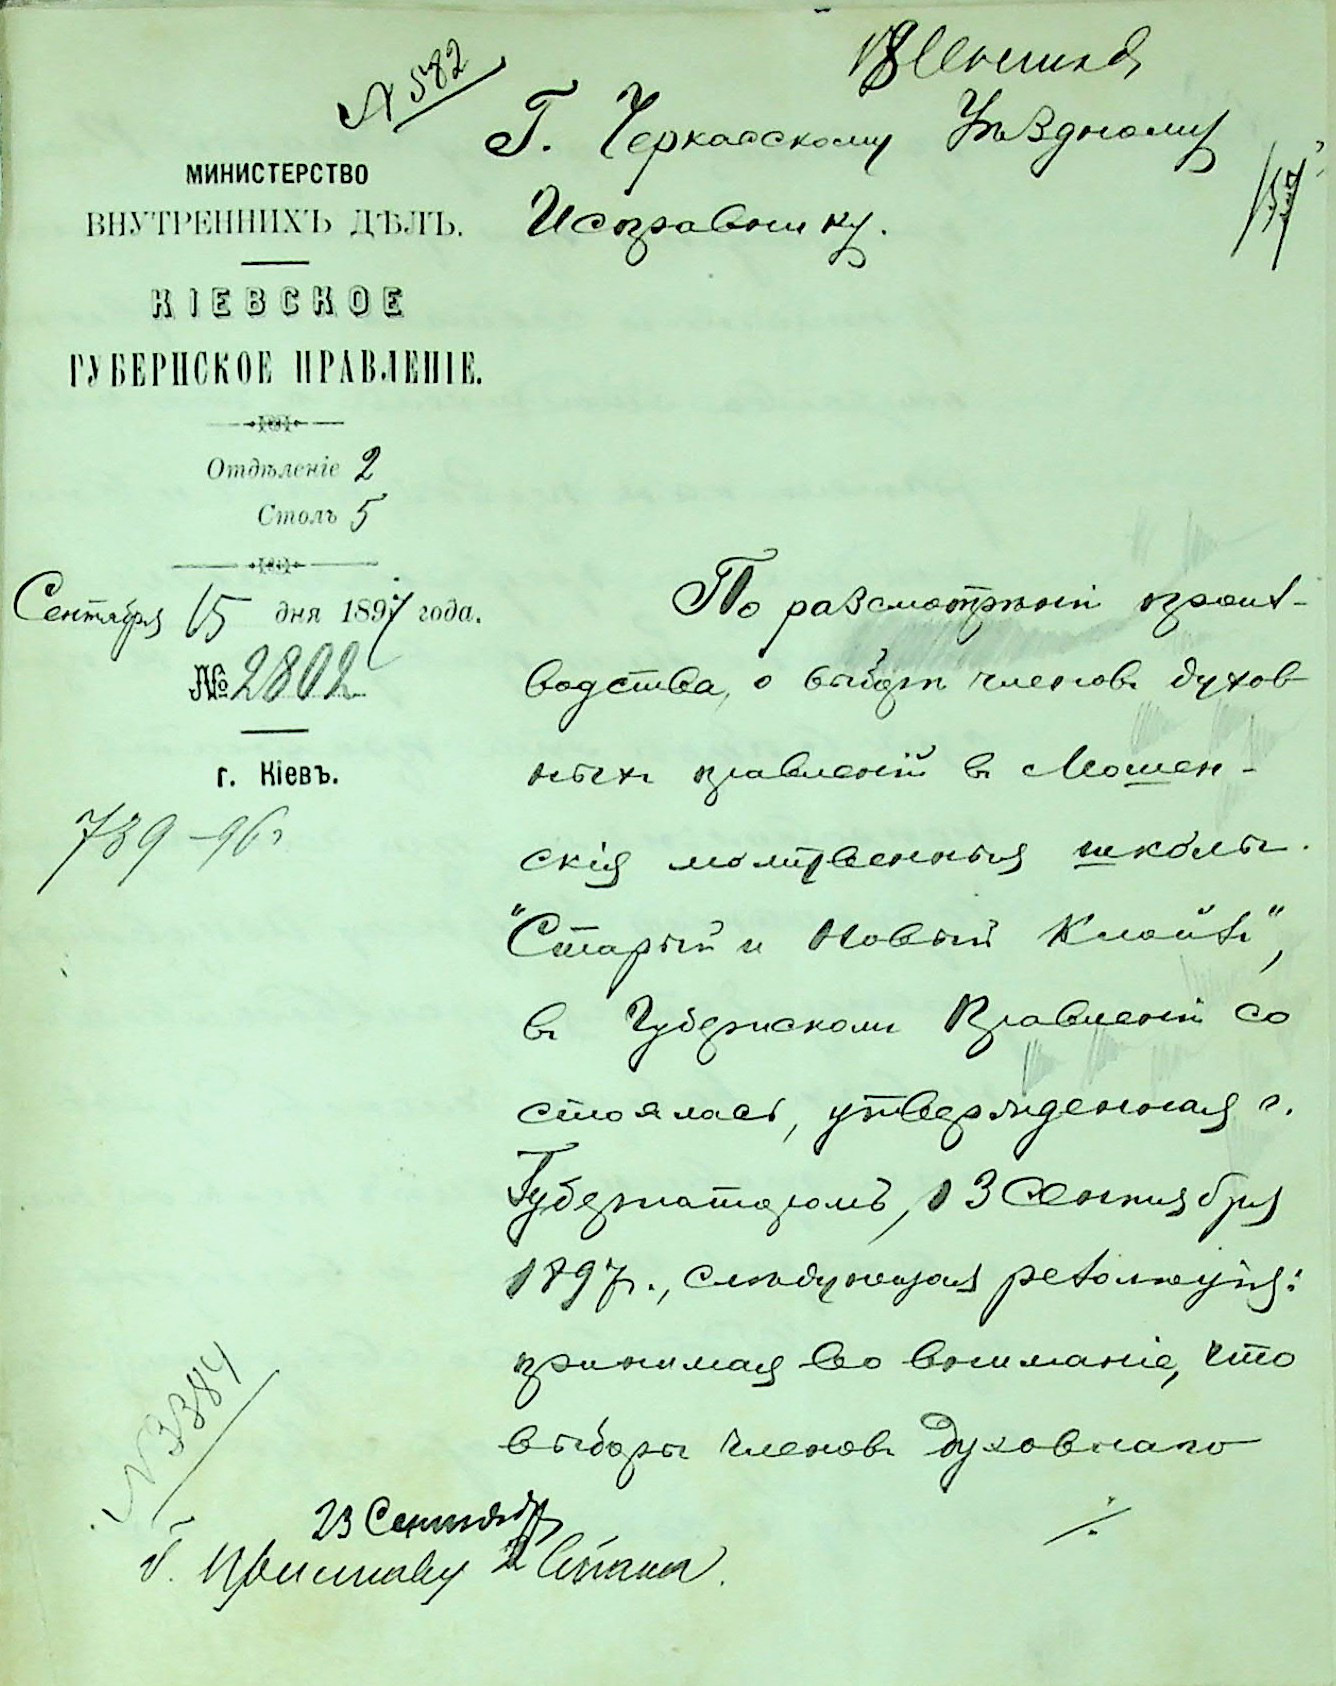 18 Сентяб
№ 582
Г. Черкасскому Уѣздному
Исправнику.
МИНИСТЕРСТВО
ВНУТРЕННИХЪ ДѢЛЪ.
КІЕВСКОЕ
ГУБЕРНСКОЕ ПРАВЛЕНІЕ.
Отдѣленіе 2
Столъ 5
Сентября 15 дня 1897 года.
№ 2802
г. Кіевъ.
739 - 96 г
По разсмотрѣніи произ-
водства, о выборѣ членовъ духов
ныхъ правленій въ Мошен-
скія молитвенныя школы
"Старый и Новый Клойзъ",
въ Губернскомъ Правленіи со
стоялась, утвержденная г.
Губернаторомъ, 13 Сентября
1897 г., слѣдующая резолюція:
принимая во вниманіе, что
выборы членовъ духовнаго
№ 3384
23 Сентяб
Г. Приставу 2 Стана.